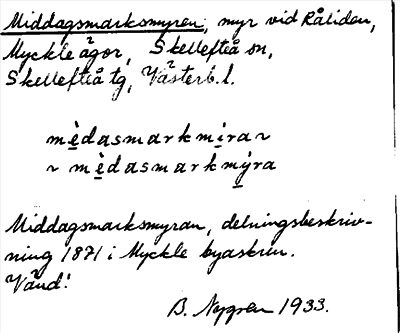 Middagsmarksmyren, myr vid Råliden,
Myckle ägor, Skellefteå sn,
Skellefteå tg, Västerb. l.
mèdasmarkmira ~
~ mèdasmarkmýra
Middagsmarksmyran, delningsbeskriv-
ning 1871 i Myckle byaskrin.
Vänd!
B. Nygren 1933.